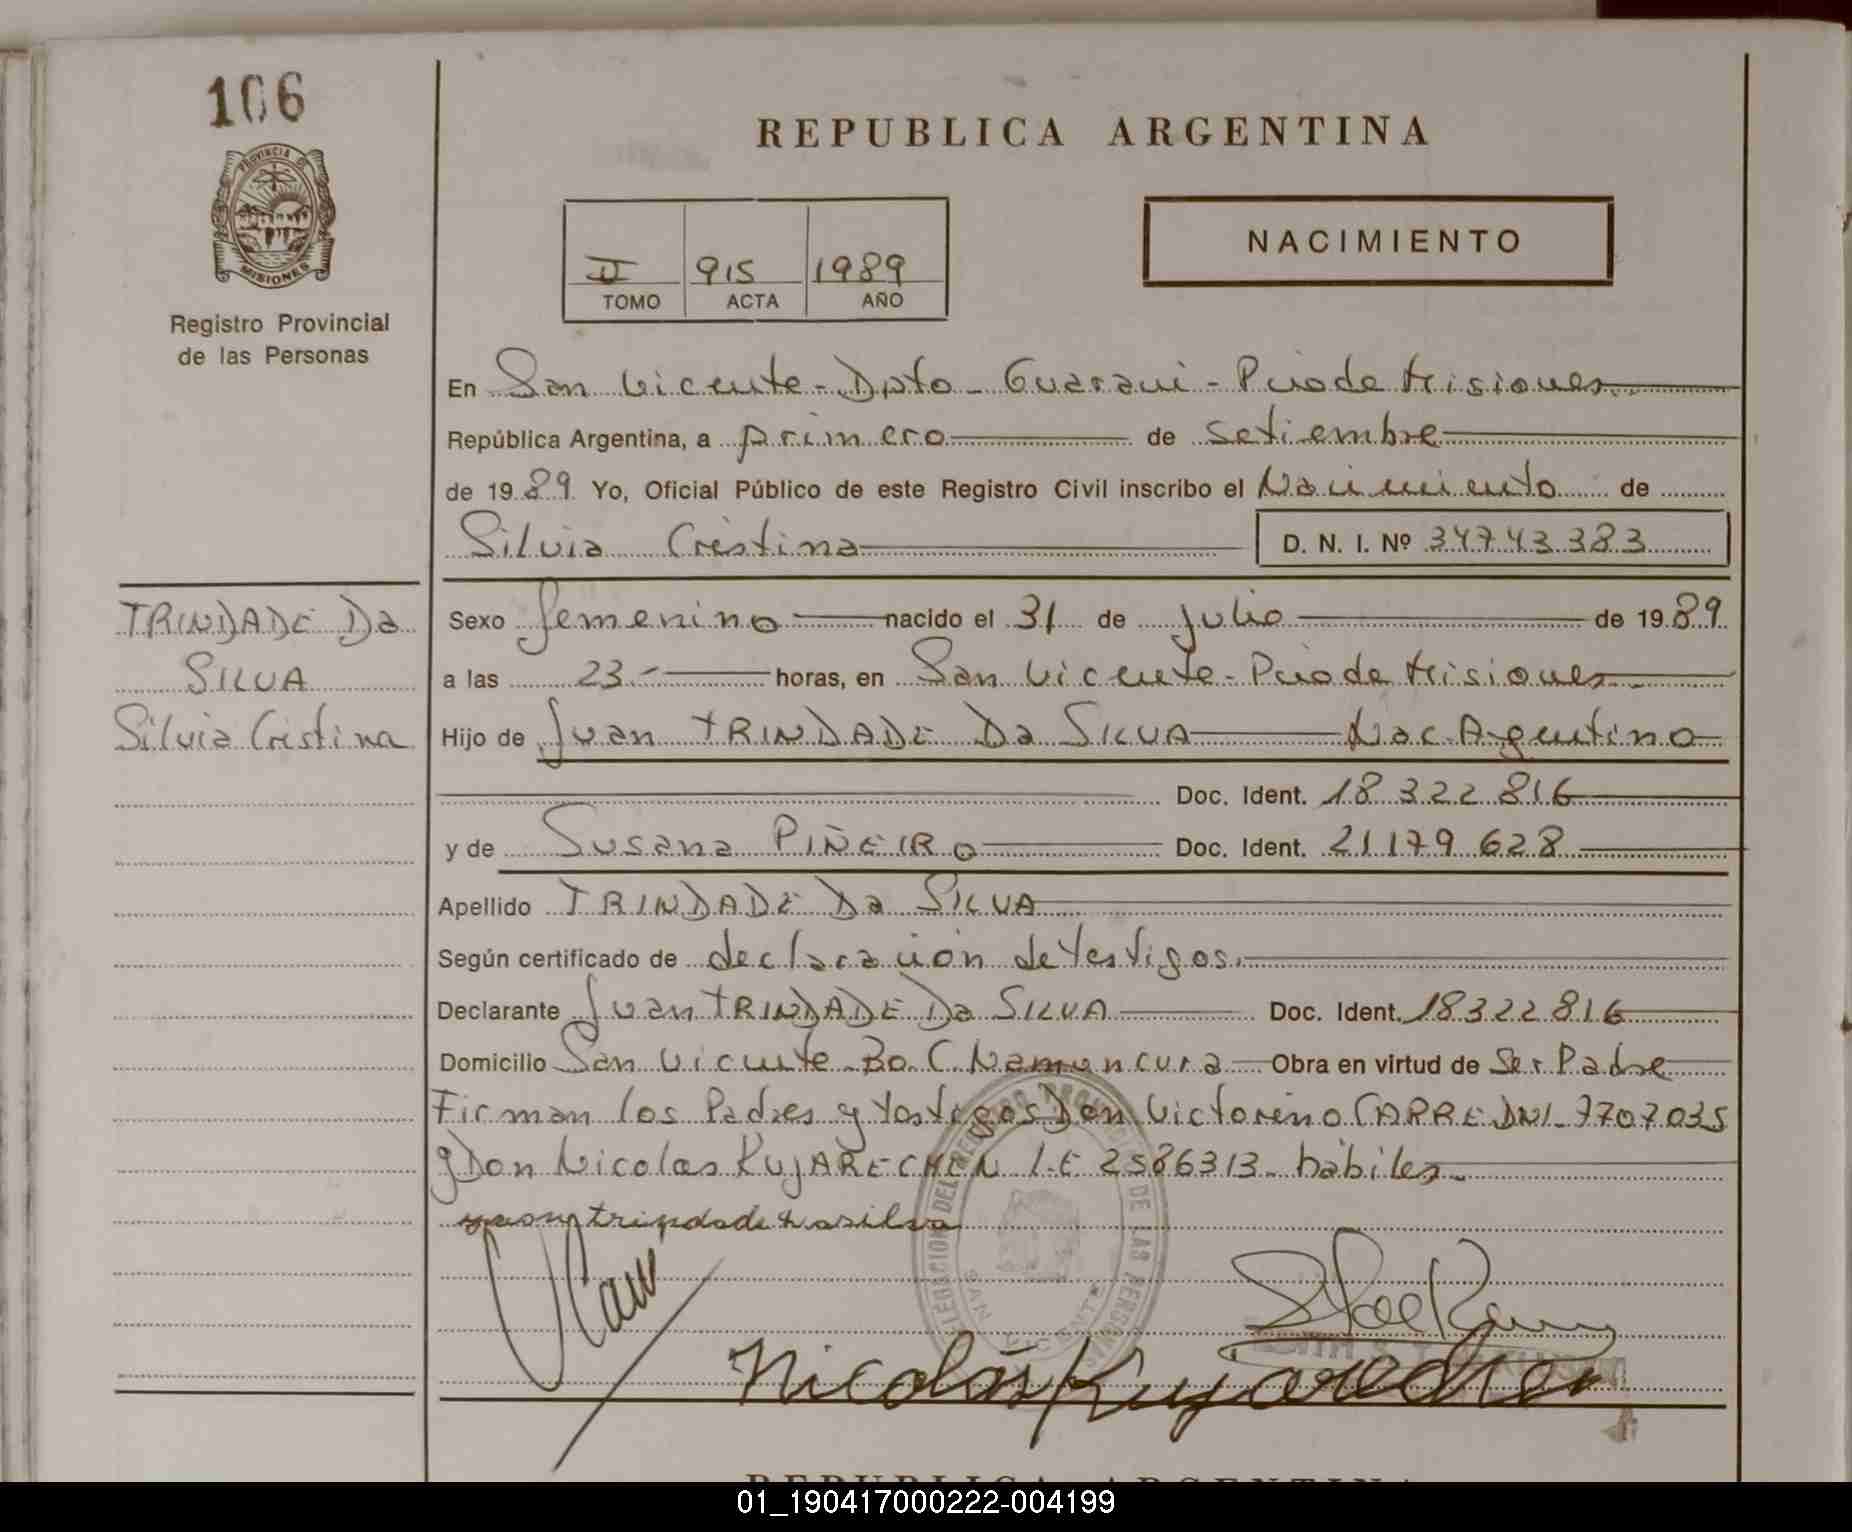 106
PROVINCIA DE
MISIONES
Registro Provincial
de las Personas
REPUBLICA ARGENTINA
II 915 1989
TOMO ACTA AÑO
NACIMIENTO
En San Vicente - Dpto - Guarani - Pciade Misiones
República Argentina, a primero de setiembre
de 1989 Yo, Oficial Público de este Registro Civil inscribo el Nacimiento de
Silvia Cristina D. N. I. Nº 34743383
TRINDADE Da
SILVA
Silvia Cristina
Sexo femenino nacido el 31 de julio de 1989
a las 23.- horas, en San Vicente - Pciade Misiones
Hijo de Juan TRINDADE Da SILVA Nac. Argentino
Doc. Ident. 18 322 816
y de Susana PIÑEIRO Doc. Ident. 21179 628
Apellido TRINDADE Da SILVA
Según certificado de declaración de testigos.
Declarante Juan TRINDADE Da SILVA Doc. Ident. 18322816
Domicilio San Vicente Bo. C. Namuncura Obra en virtud de Ser Padre
Firman los Padres y testigos Don Victorino CARRE DNI- 7707035
y Don Nicolas KUJARECHEN L.E 2586313- hábiles-
trindade dasilva
DELEGACION DEL REGISTRO PROVINCIAL DE LAS PERSONAS
SAN VICENTE
Nicolás Kujarechen
REPUBLICA ARGENTINA
01_190417000222-004199